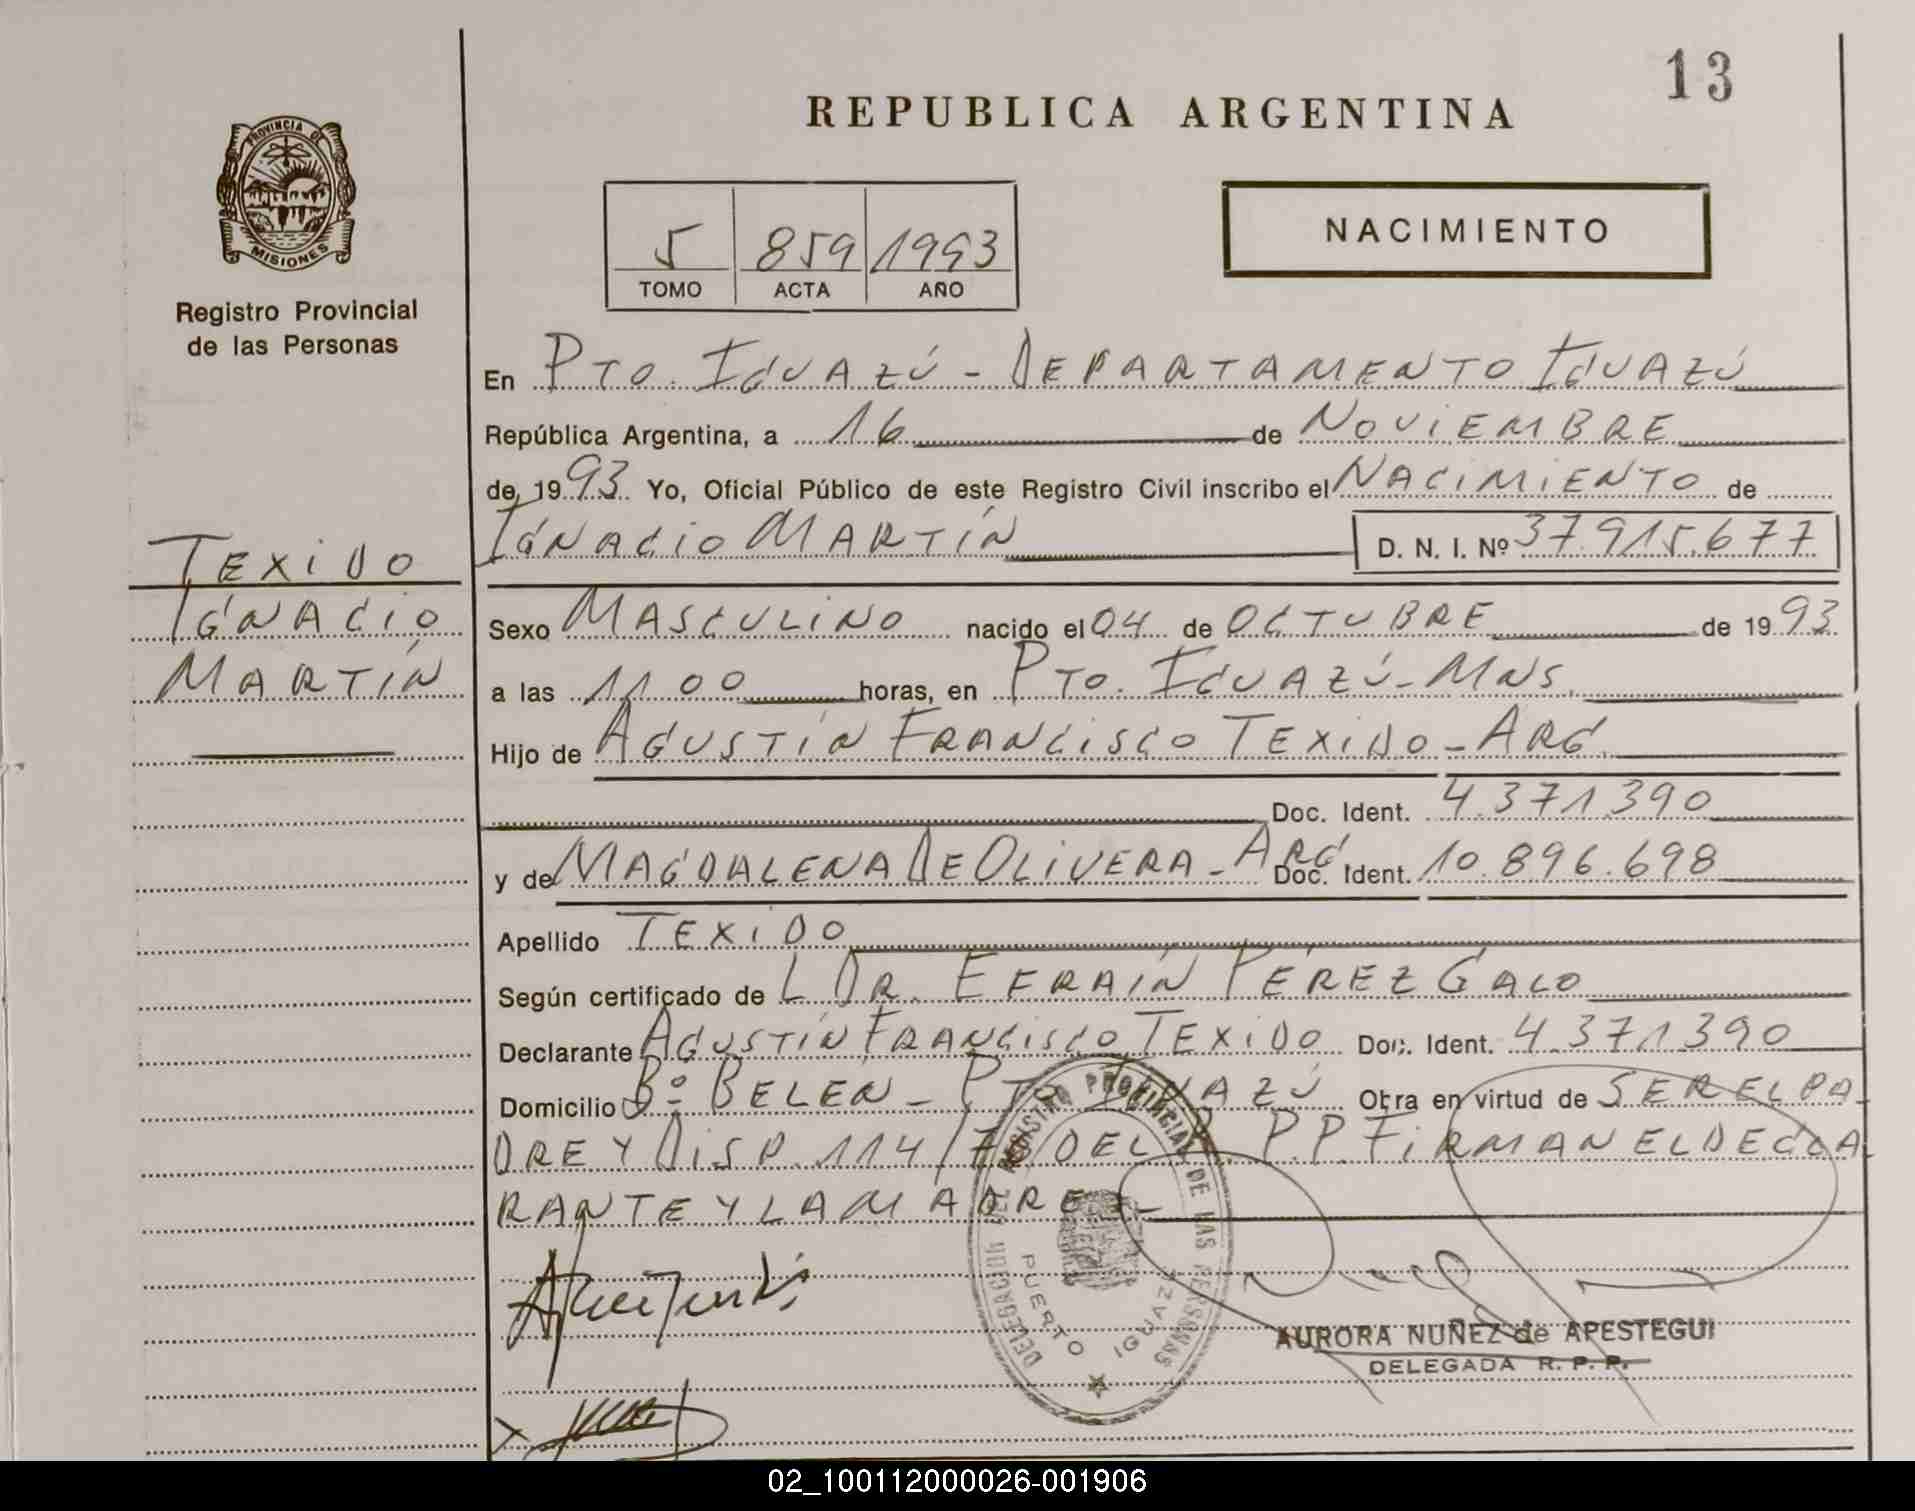 13
REPUBLICA ARGENTINA
PROVINCIA DE
MISIONES
Registro Provincial
de las Personas
NACIMIENTO
5 859 1993
TOMO ACTA AÑO
En PTO. IGUAZÚ - DEPARTAMENTO IGUAZÚ
República Argentina, a 16 de NOVIEMBRE
de 1993 Yo, Oficial Público de este Registro Civil inscribo el NACIMIENTO de
IGNACIO MARTÍN D. N. I. Nº 37.915.677
TEXIDO
IGNACIO
MARTÍN
Sexo MASCULINO nacido el 04 de OCTUBRE de 1993
a las 11 00 horas, en PTO. IGUAZÚ - MNS.
Hijo de AGUSTÍN FRANCISCO TEXIDO - ARG.
Doc. Ident. 4.371.390
y de MAGDALENA DE OLIVERA - ARG Doc. Ident. 10.896.698
Apellido TEXIDO
Según certificado de L DR. EFRAÍN PÉREZ GALO
Declarante AGUSTÍN FRANCISCO TEXIDO Doc. Ident. 4.371.390
Domicilio Bº BELÉN - PTO IGUAZÚ Obra en virtud de SER EL PA-
DRE Y DISP. 114/ DEL R.P.P. FIRMAN EL DECLA-
RANTE Y LA MADRE.-
DELEGACION DEL REGISTRO PROVINCIAL DE LAS PERSONAS
PUERTO IGUAZU
AURORA NUÑEZ de APESTEGUI
DELEGADA R. P. P.
02_100112000026-001906